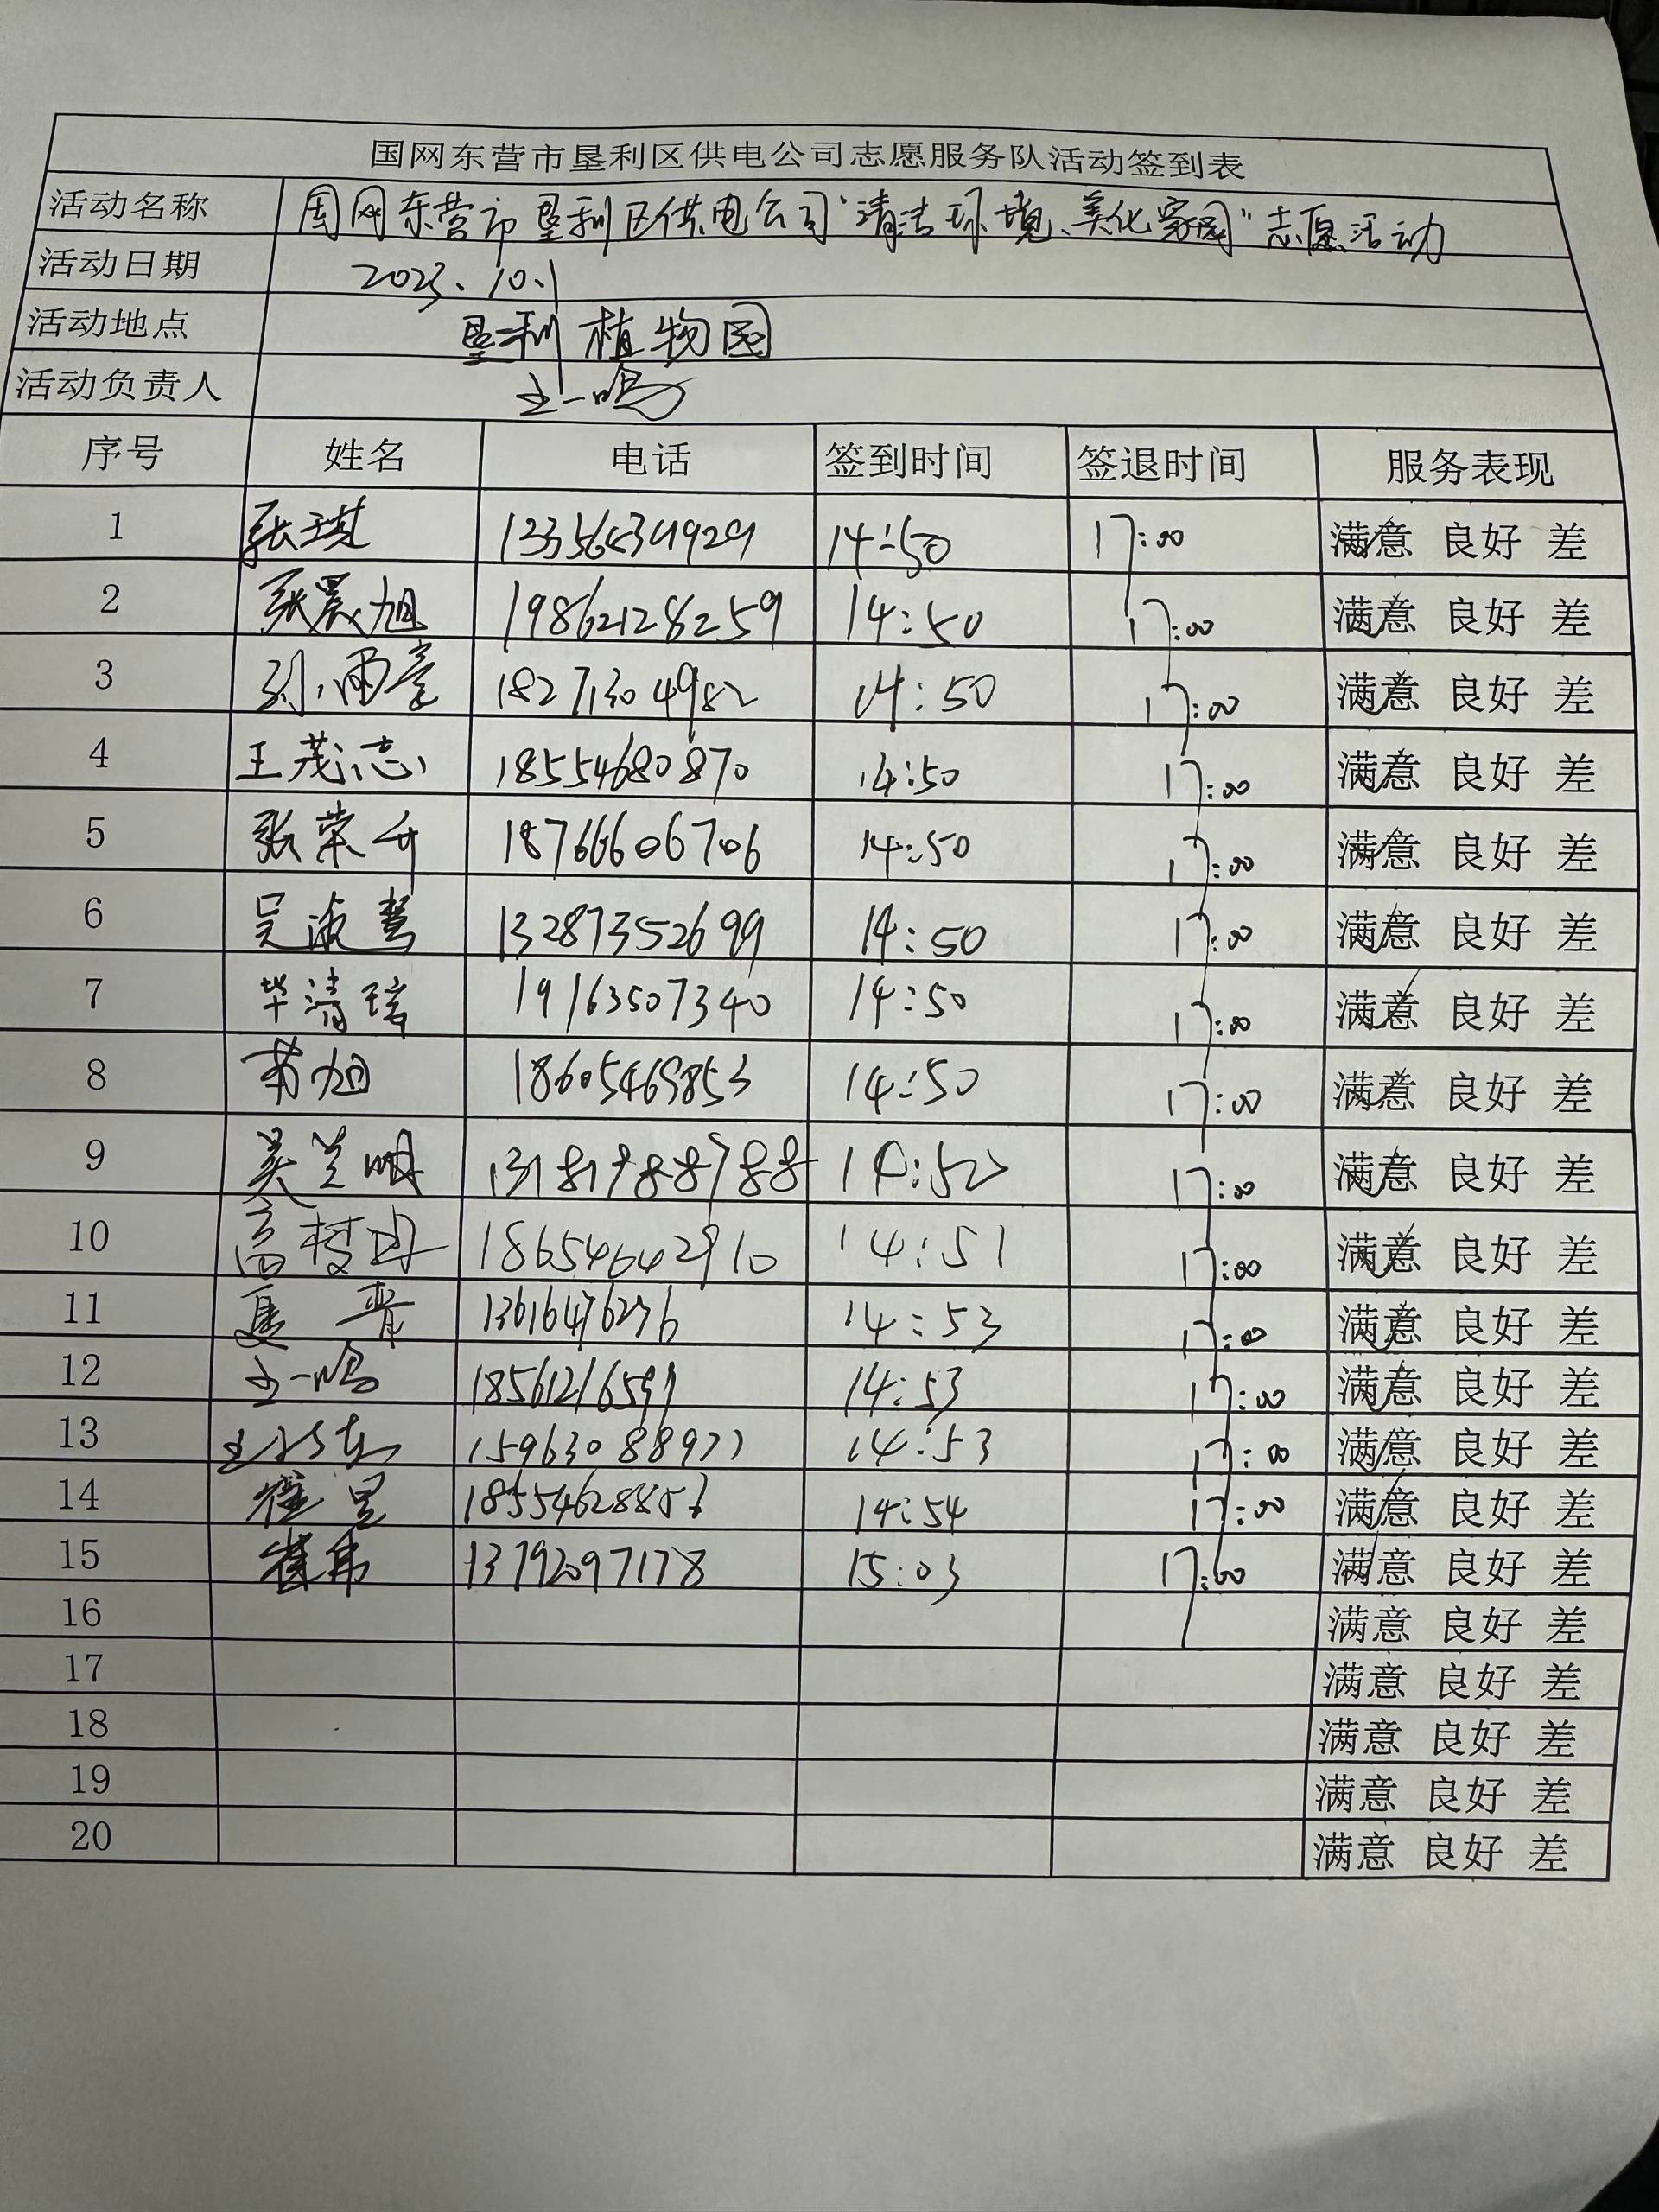 国网东营市垦利区供电公司志愿服务队活动签到表
活动名称 国网东营市垦利区供电公司"清洁环境、美化家园"志愿活动
活动日期 2023.10.1
活动地点 垦利植物园
活动负责人 王一鸣
序号 姓名 电话 签到时间 签退时间 服务表现
1 张琪 14:50 17:00 满意 良好 差
2 张晨旭 19862128259 14:50 17:00 满意 良好 差
3 18271304982 14:50 17:00 满意 良好 差
4 王茂志 18554680870 14:50 17:00 满意 良好 差
5 张荣升 18766606706 14:50 17:00 满意 良好 差
6 吴淑慧 13287352699 14:50 17:00 满意 良好 差
7 毕清瑶 19163507340 14:50 17:00 满意 良好 差
8 18605469853 14:50 17:00 满意 良好 差
9 17:00 满意 良好 差
10 18654642910 14:51 17:00 满意 良好 差
11 14:53 17:00 满意 良好 差
12 王一鸣 14:53 17:00 满意 良好 差
13 15963088977 14:53 17:00 满意 良好 差
14 14:54 17:00 满意 良好 差
15 崔伟 13792097178 15:03 17:00 满意 良好 差
16 满意 良好 差
17 满意 良好 差
18 满意 良好 差
19 满意 良好 差
20 满意 良好 差